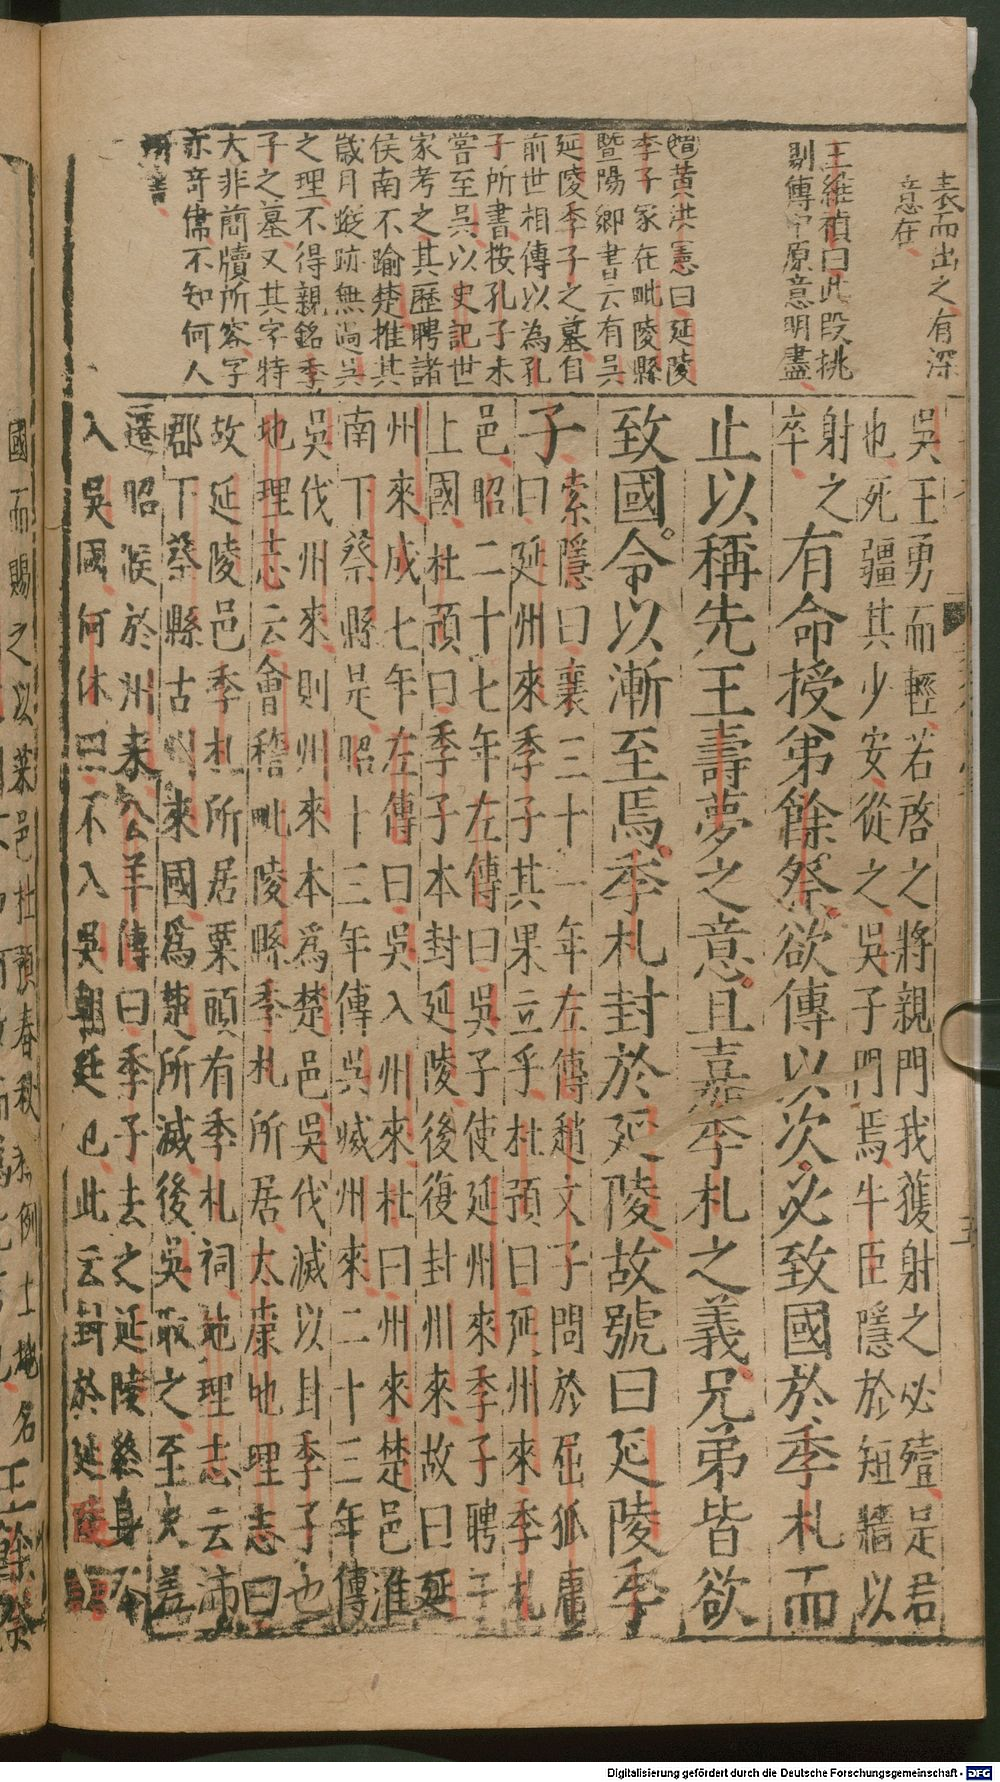 表而出之有深
意在
王維禎曰此段挑
剔傳字原意明盡
增黃洪憲曰延陵
季子家在毗陵縣
暨陽鄉書云有吳
延陵季子之墓自
前世相傳以為孔
子所書按孔子未
嘗至吳以史記世
家考之其歷聘諸
侯南不踰楚推其
歲月蹤跡無過吳
之理不得親銘季
子之墓又其字特
大非簡牘所容字
亦奇偉不知何人
所書
吳王勇而輕若啓之將親門我獲射之必殪是君
也死疆其少安從之吳子門焉牛臣隱於短牆以
射之
卒
有命授弟餘祭欲傳以次必致國於季札而
止以稱先王壽夢之意且嘉季札之義兄弟皆欲
致國令以漸至焉季札封於延陵故號曰延陵季
子
索隱曰襄三十一年左傳趙文子問於屈狐庸
曰延州來季子其果立乎杜預曰延州來季札
邑昭二十七年左傳曰吳子使延州來季子聘于
上國杜預曰季子本封延陵後復封州來故曰延
州來成七年左傳曰吳入州來杜曰州來楚邑淮
南下蔡縣是昭十三年傳吳滅州來二十三年傳
吳伐州來則州來本為楚邑吳伐滅以封季子也
地理志云會稽毗陵縣季札所居太康地理志曰
故延陵邑季札所居栗頭有季札祠地理志云沛
郡下蔡縣古州來國為楚所滅後吳取之至夫差
遷昭侯於州來公羊傳曰季子去之延陵終身不
入吳國何休曰不入吳朝廷也此云封於延陵
國而賜之以菜邑杜預春秋釋例土地名
王餘祭
Digitalisierung gefördert durch die Deutsche Forschungsgemeinschaft - DFG